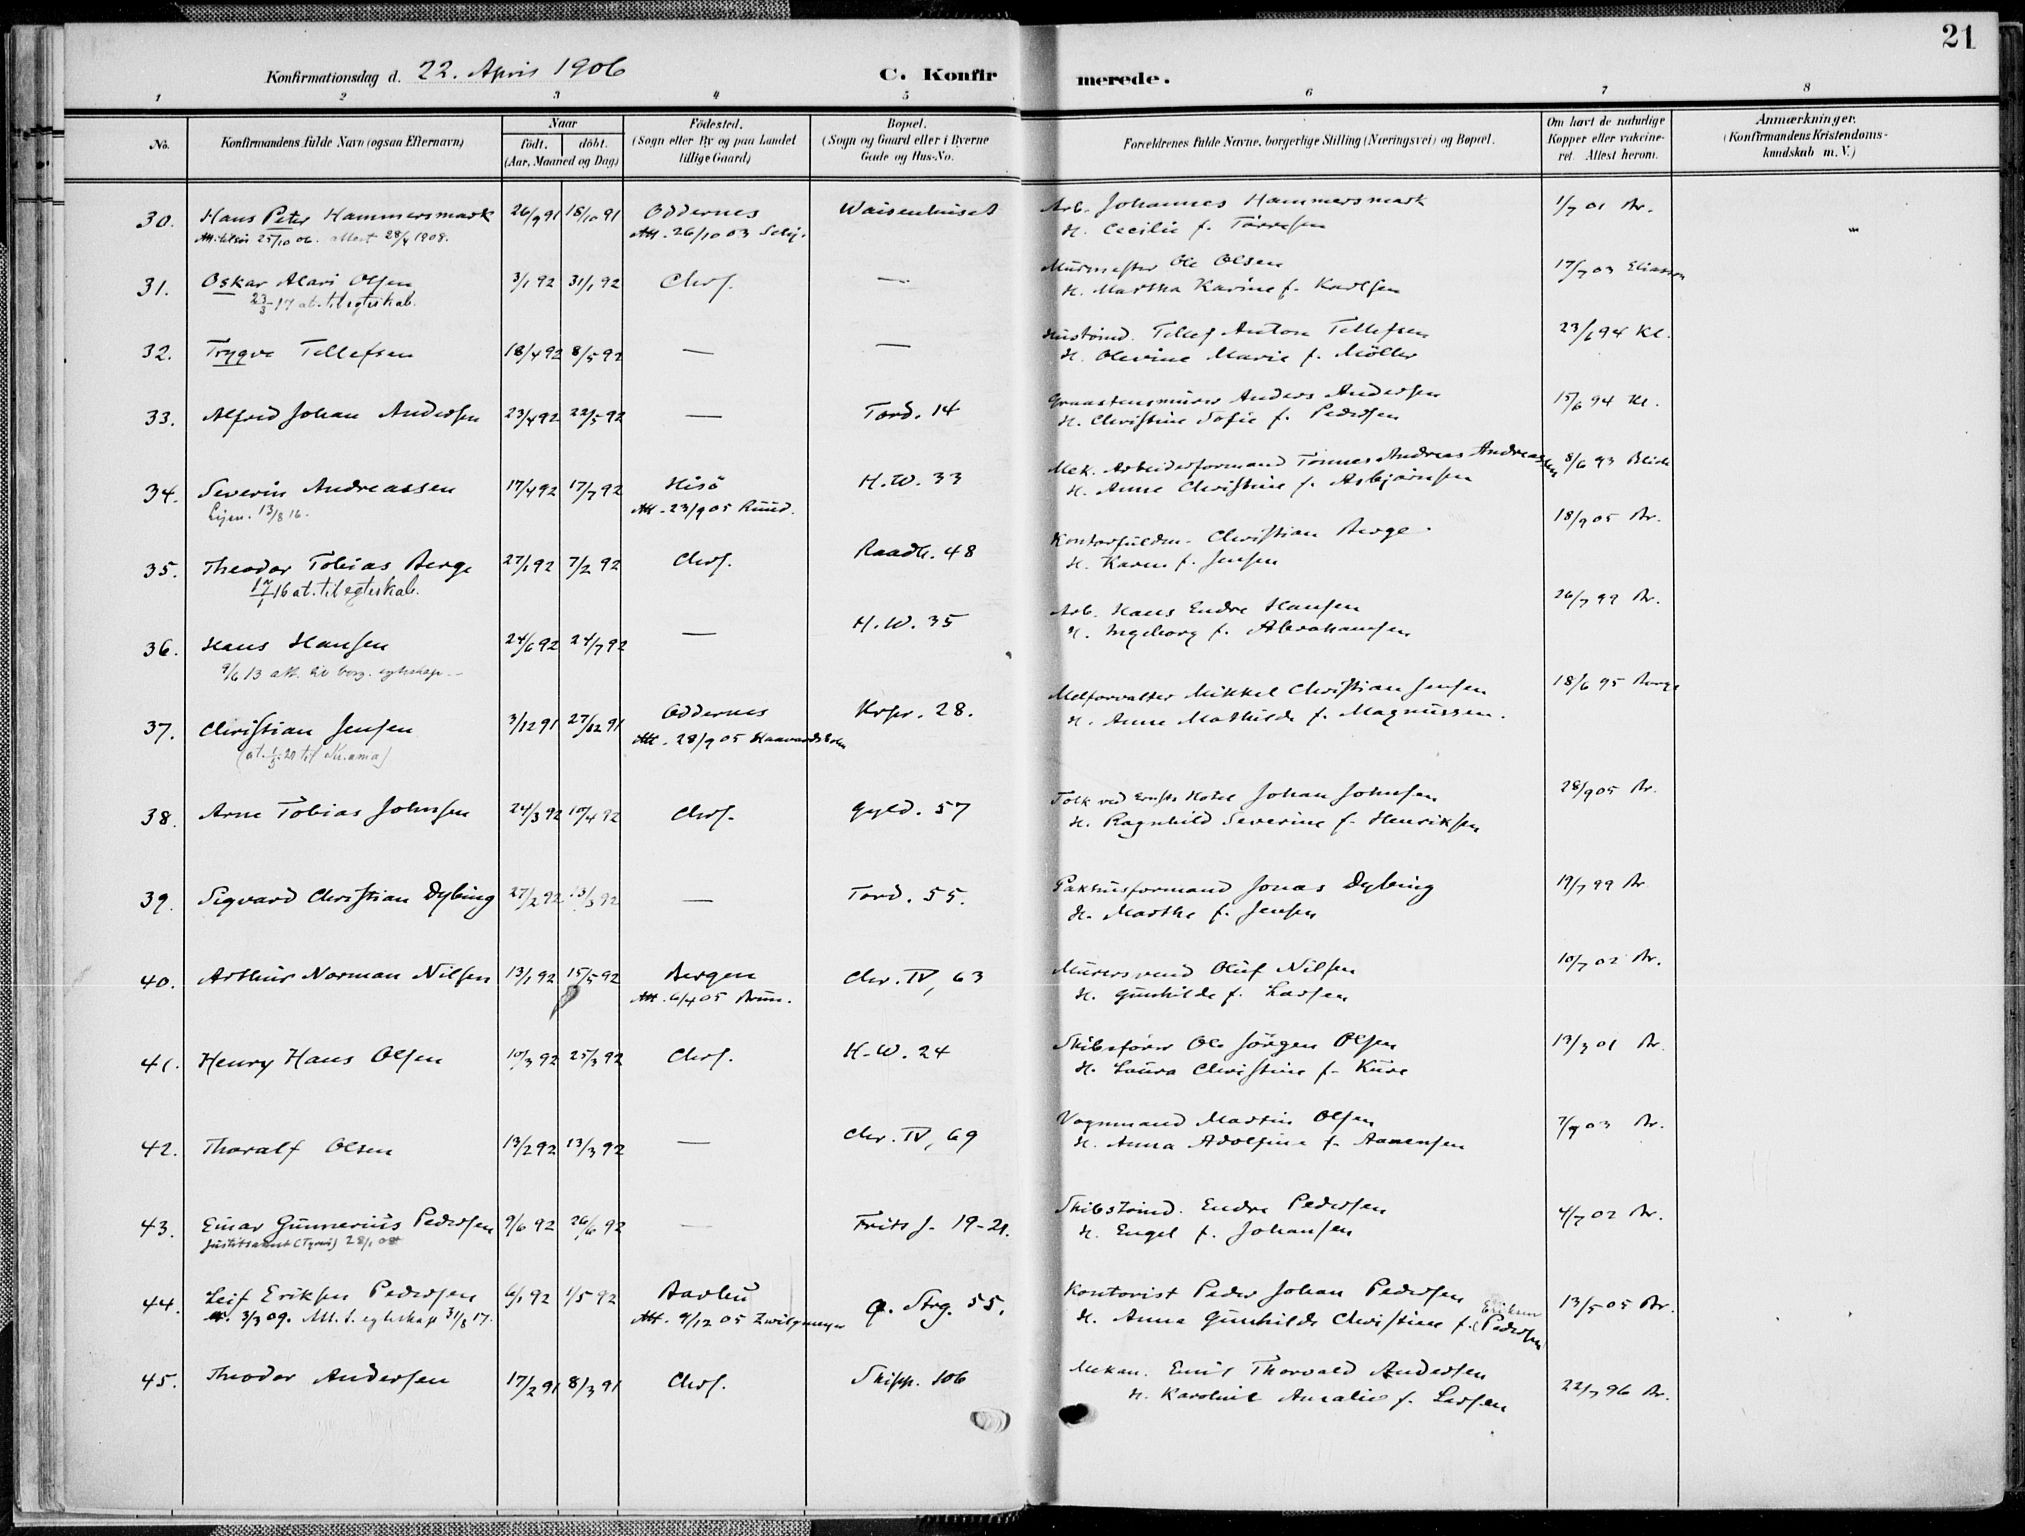 21
Konfirmationsdag d. 22. April 1906
C. Konfirmerede.
1 2 3 4 5 6 7 8
No.
Konfirmandens fulde Navn (ogsaa Efternavn)
Naar
født. døbt.
(Aar, Maaned og Dag)
Fødested.
(Sogn eller By og paa Landet
tillige Gaard)
Bopæl.
(Sogn og Gaard eller i Byerne
Gade og Hus-No.
Forældrenes fulde Navne, borgerlige Stilling (Næringsvei) og Bopæl.
Om havt de naturlige
Kopper eller vakcine-
ret. Attest herom.
Anmærkninger.
(Konfirmandens Kristendoms-
kundskab m. V.)
30. Hans Peter Hammersmark 26/9 91 18/10 91 Oddernes Waisenhuset Arb. Johannes Hammersmark 1/7 01 Br.
25/10 06. attest 28/4 1908. Att. 26/10 03 H. Cecilie f. Tørresen
31. Oskar Alari Olsen 3/1 92 31/1 92 Chrs. — Murmester Ole Olsen 17/7 03 Eliassen
23/3-17 at. til egteskab. H. Martha Karine f. Karlsen
32. Trygve Tellefsen 18/4 92 8/5 92 — — Tellef Anton Tellefsen 23/6 94 Kl.
H. Olevine Marie f. Møller
33. Alfred Johan Andersen 23/4 92 22/5 92 — Tord. 14 Graastensmurer Anders Andersen 15/6 94 Kl.
H. Christine Sofie f. Pedersen
34. Severin Andreassen 17/4 92 17/7 92 Hisø H.W. 33 Mek. Arbeiderformand Tønnes Andreas Andreassen 8/6 93
13/8 16. Att. 23/9 05 Ruud. H. Anne Christine f. Asbjørnsen
35. Theodor Tobias Berge 27/1 92 7/2 92 Chrs. Raadh. 48 Kontorfuldm. Christian Berge 18/9 05 Br.
17/1 16 at. til egteskab. H. Karen f. Jensen
36. Hans Hansen 24/6 92 24/7 92 — H.W. 35 Arb. Hans Endre Hansen 26/7 99 Br.
9/6 13 att. til borg. egteskap H. Ingeborg f. Abrahamsen
37. Christian Jensen 3/12 91 27/12 91 Oddernes Krpr. 28. Melforvalter Mikkel Christian Jensen 18/6 95
Att. 28/9 05 H. Anne Mathilde f. Magnussen.
38. Arne Tobias Johnsen 24/3 92 10/4 92 Chrs. Gyld. 57 Tolk ved Ernsts Hotel Johan Johnsen 28/9 05 Br.
H. Ragnhild Severine f. Henriksen
39. Sigvard Christian Dybing 27/2 92 13/3 92 — Tord. 55. Pakhusformand Jonas Dybing 19/7 99 Br
H. Marthe f. Jensen
40. Arthur Norman Nilsen 13/1 92 15/5 92 Bergen Chr. IV, 63 Murersvend Oluf Nilsen 10/7 02 Br.
Att. 6/4 05 H. Gunhilde f. Larsen
41. Henry Hans Olsen 10/3 92 25/3 92 Chrs. H.W. 24 Skibsfører Ole Jørgen Olsen 13/3 01 Br.
H. Laura Christine f. Kure
42. Thoralf Olsen 13/2 92 13/3 92 — Chr. IV, 69 Vognmand Martin Olsen 7/9 03 Br.
H. Anna Adolfine f. Aanensen
43. Einar Gunnerius Pedersen 9/6 92 26/6 92 — Frits J. 19-21. Skibstømd. Endre Pedersen 4/7 02 Br.
28/1 08 H. Engel f. Johansen
44. Leif Eriksen Pedersen 6/1 92 1/5 92 Aarhu Q. Strg. 55. Kontorist Peder Johan Pedersen 13/5 05 Br.
3/3 09. Att. t. egteskap 31/8 17. Att. 9/12 05 H. Anna Gunhilde Christine f. (Eriksen Pedersen)
45. Theodor Andersen 17/2 91 8/3 91 Chrs. Skipp. 106 Mekan. Emil Thorvald Andersen 22/7 96 Br.
H. Karoline Amalie f. Larsen